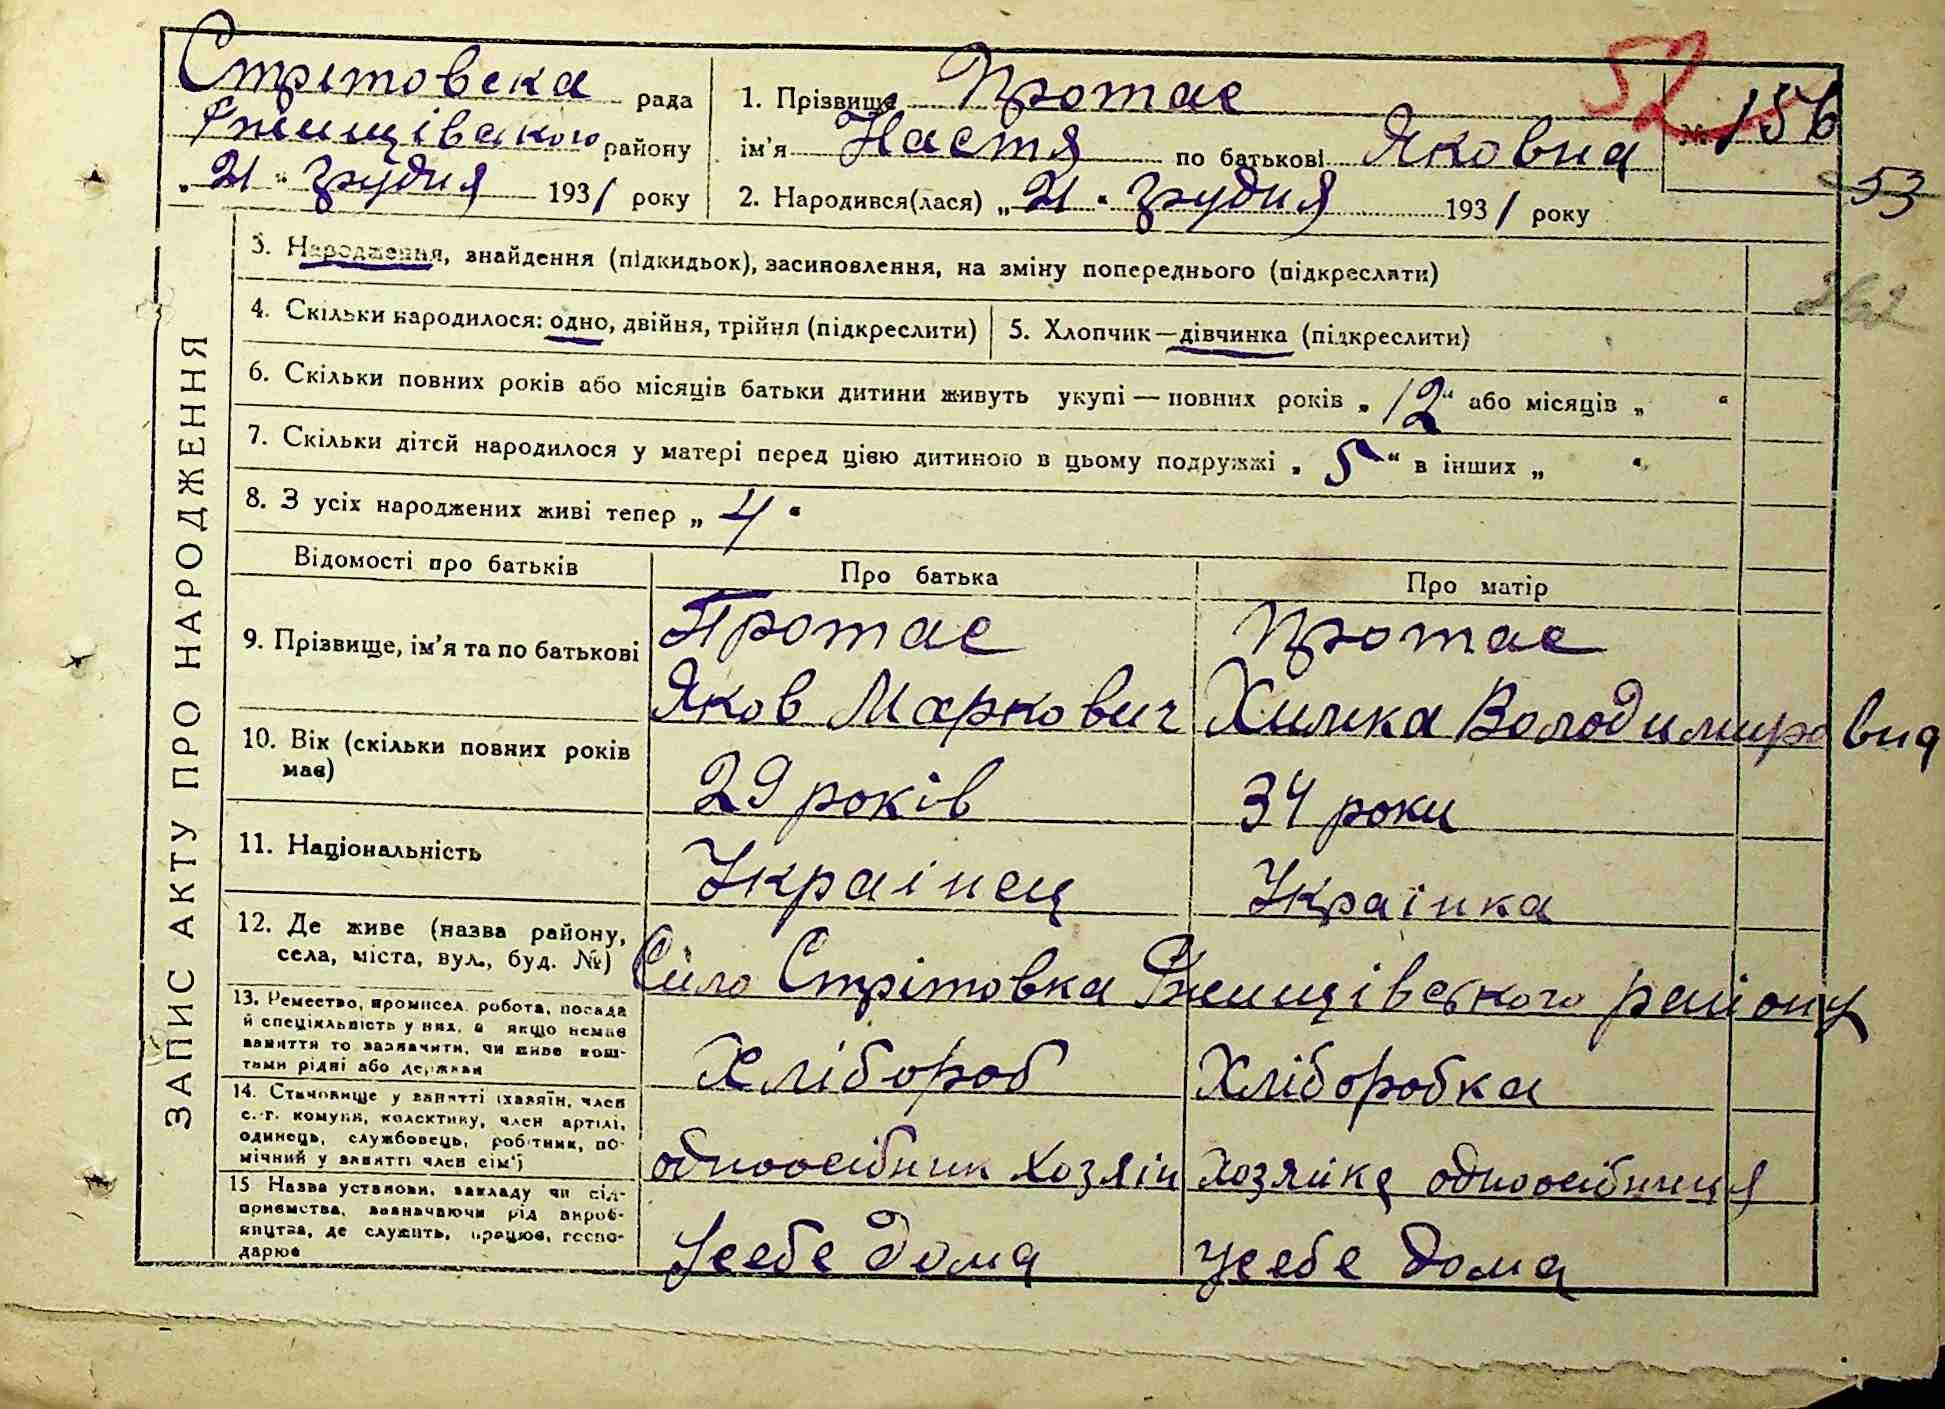 Стрітовска рада
Ржищівского району
„21“ Грудня 1931 року
1. Прізвище Протас
ім'я Настя по батькові Яковна
2. Народився(лася) „21“ Грудня 1931 року
52
№ 156
53
ЗАПИС АКТУ ПРО НАРОДЖЕННЯ
3. Народження, знайдення (підкидьок), засиновлення, на зміну попереднього (підкреслити)
4. Скільки народилося: одно, двійня, трійня (підкреслити)
5. Хлопчик—дівчинка (підкреслити)
6. Скільки повних років або місяців батьки дитини живуть укупі — повних років „12“ або місяців „ “
7. Скільки дітей народилося у матері перед цією дитиною в цьому подружжі „5“ в інших „ “
8. З усіх народжених живі тепер „4“
Відомості про батьків
Про батька
Про матір
9. Прізвище, ім'я та по батькові
Протас
Яков Маркович
Протас
Химка Володимировна
10. Вік (скільки повних років
має)
29 років
34 роки
11. Національність
Украінец
Украінка
12. Де живе (назва району,
села, міста, вул., буд. №)
Село Стрітовка Ржищівського району
13. Ремество, промисел, робота, посада
й спеціяльність у них, а якщо немає
заняття то зазначити, чи живе кош-
тами рідні або держави
Хлібороб
Хліборобка
14. Становище у занятті (хазяїн, член
с.-г. комуни, колективу, член артілі,
одинець, службовець, робітник, по-
мічний у занятті член сім'ї)
одноосібник хозяін
хозяйка одноосібниця
15. Назва установи, закладу чи під-
приємства, зазначаючи рід вироб-
ництва, де служить, працює, госпо-
дарює
Усебе дома
Усебе дома